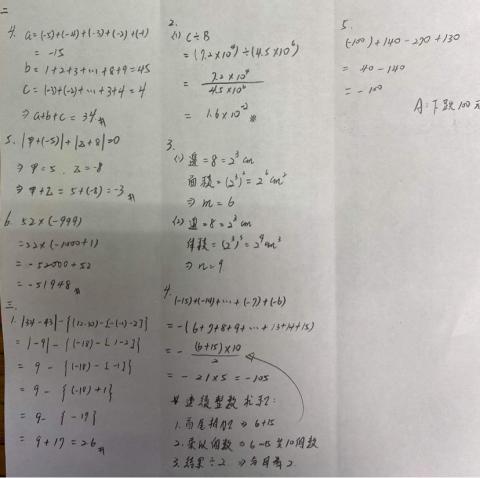 二
4. a=(-5)+(-4)+(-3)+(-2)+(-1)
= -15
b = 1+2+3+…+8+9=45
C=(-3)+(-2)+…+3+4=4
⇒ a+b+c = 34 #
5. |φ+(-5)|+|Z+8|=0
⇒ φ=5 . Z=-8
⇒ φ+Z = 5+(-8)=-3 #
6. 52×(-999)
=52×(-1000+1)
= -52000+52
= -51948 #
三.
1. |34-43|-{(12-30)-[-(-1)-2]}
= |-9|-{(-18)-[1-2]}
= 9-{(-18)-[-1]}
= 9-{(-18)+1}
= 9-{-17}
= 9+17=26 #
2.
(1) C÷B
=(7.2×10⁴)÷(4.5×10⁶)
= 7.2×10⁴ / 4.5×10⁶
= 1.6×10⁻² #
3.
(1) 邊=8=2³cm
面積=(2³)²=2⁶cm²
⇒ m=6
(2) 邊=8=2³cm
体積=(2³)³=2⁹cm³
⇒ n=9
4.
(-15)+(-14)+…+(-7)+(-6)
=-(6+7+8+9+…+13+14+15)
= - (6+15)×10 / 2
= -21×5=-105
※連續整數求和:
1.首尾相加 ⇒ 6+15
2.乘以個數 ⇒ 6~15共10個數
3.結果÷2 ⇒
5.
(-100)+140-270+130
= 40-140
= -100
A:下跌100元